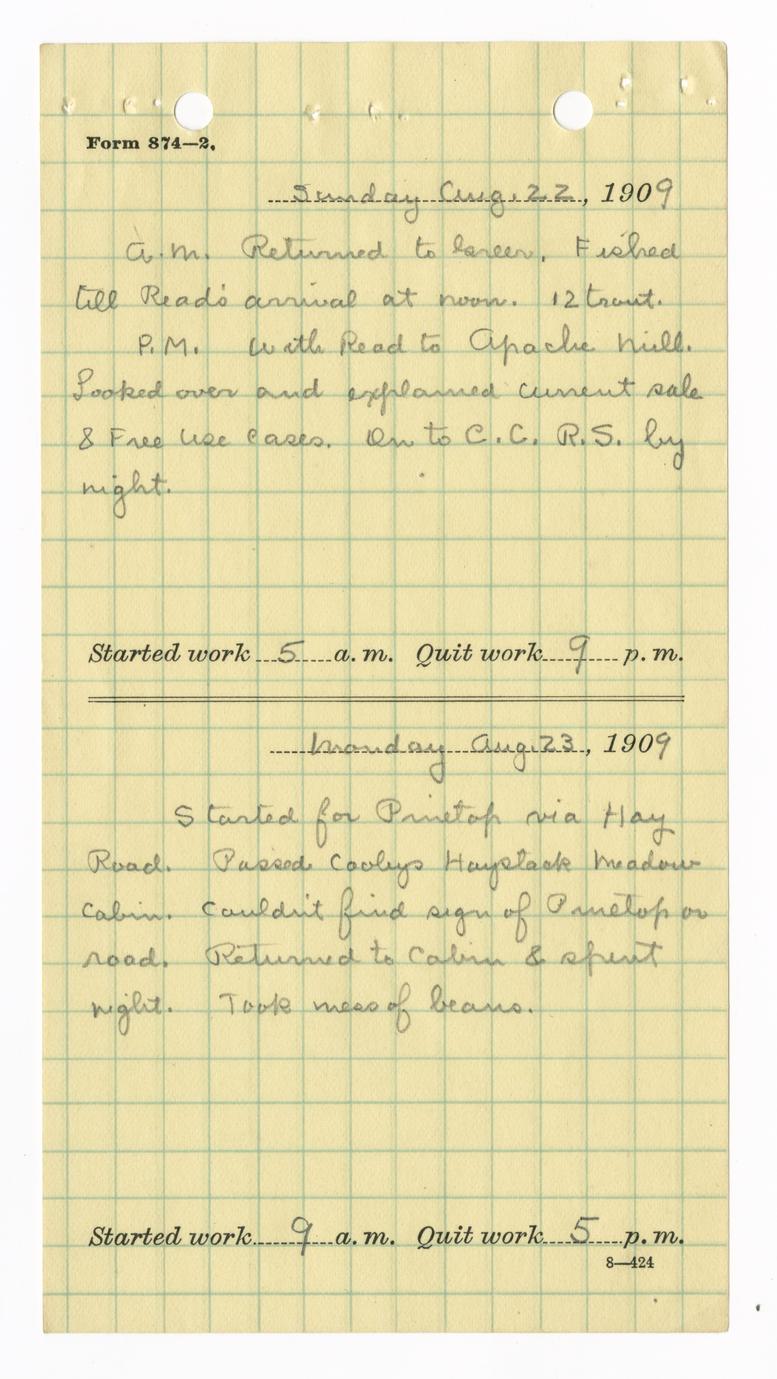 Form 874—2.
Sunday Aug. 22, 1909
A.M. Returned to Greer. Fished
till Read's arrival at noon. 12 trout.
P.M. With Read to Apache Mill.
Looked over and explained current sale
& Free Use cases. On to C.C. R.S. by
night.
Started work 5 a.m. Quit work 9 p.m.
Monday Aug. 23, 1909
Started for Pinetop via Hay
Road. Passed Cooleys Haystack Meadow
Cabin. Couldn't find sign of Pinetop or
road. Returned to Cabin & spent
night. Took mess of beans.
Started work 9 a.m. Quit work 5 p.m.
8—424